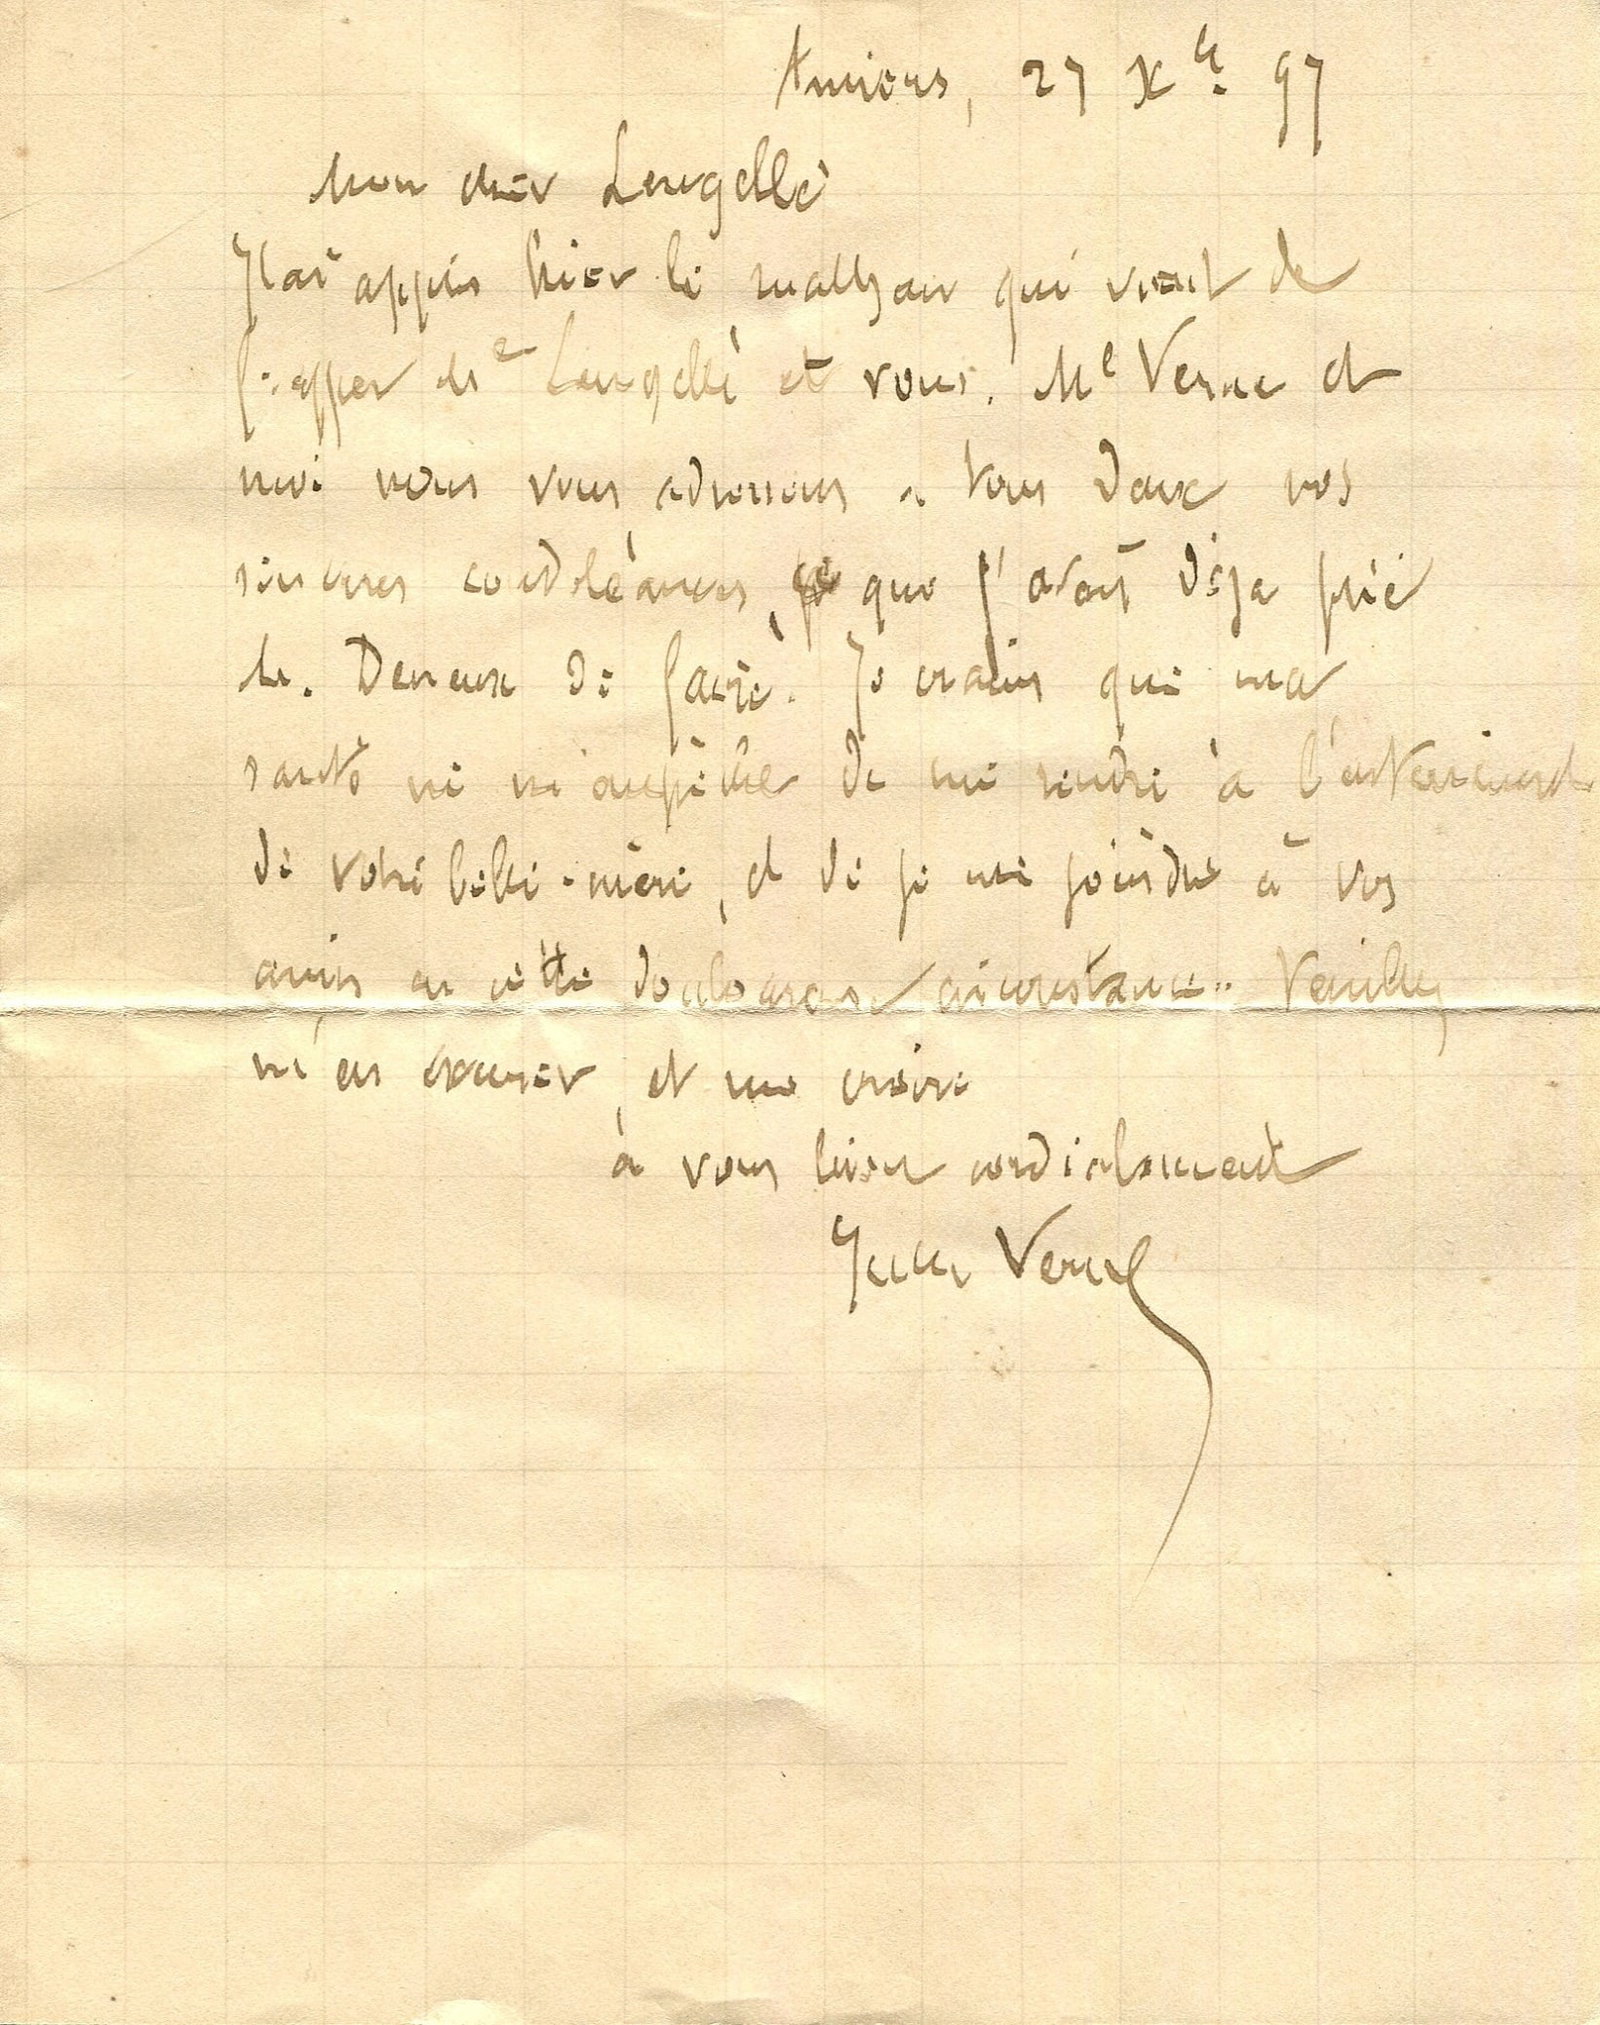 Amiens, 27 Xbre 97
Mon cher Lengellé
J'ai appris hier le malheur qui vient de
frapper Me Lengellé et vous. Me Verne et
moi nous vous adressons à tous deux nos
sincères condoléances, que j'avais déjà prié
M. Deneux de faire. Je crains que ma
santé ne m'empêche de me rendre à l'enterrement
de votre belle-mère, et de je me joindre à vos
amis en cette douloureuse circonstance. Veuillez
m'en excuser, et me croire
à vous bien cordialement
Jules Verne